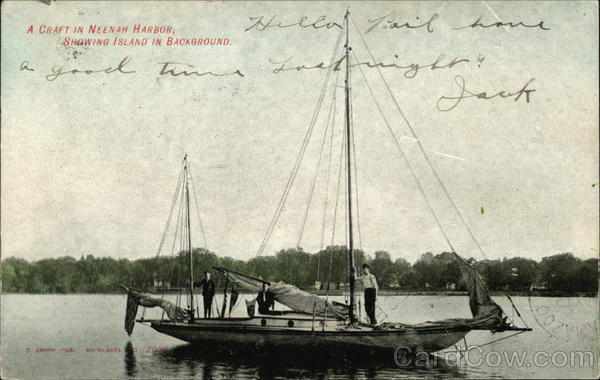 A Craft in Neenah Harbor,
Showing Island in Background.
Hello Pail have
a good time Last night?
Jack
CardCow.com